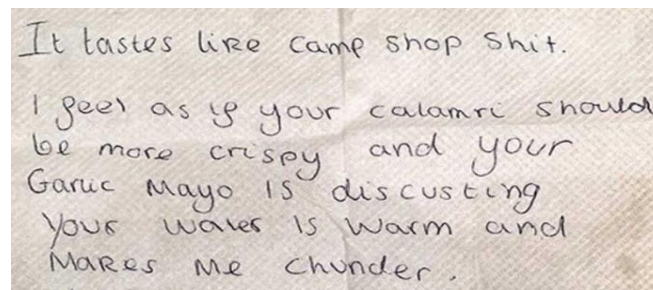 It tastes like camp shop shit.
I feel as if your calamri should
be more crispy and your
Garlic Mayo is discusting
Your water is warm and
Makes me chunder.